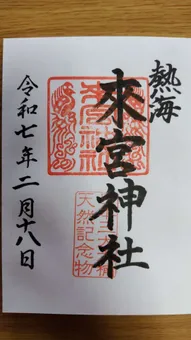 熱海
來宮神社
令和七年二月十八日
天然記念物